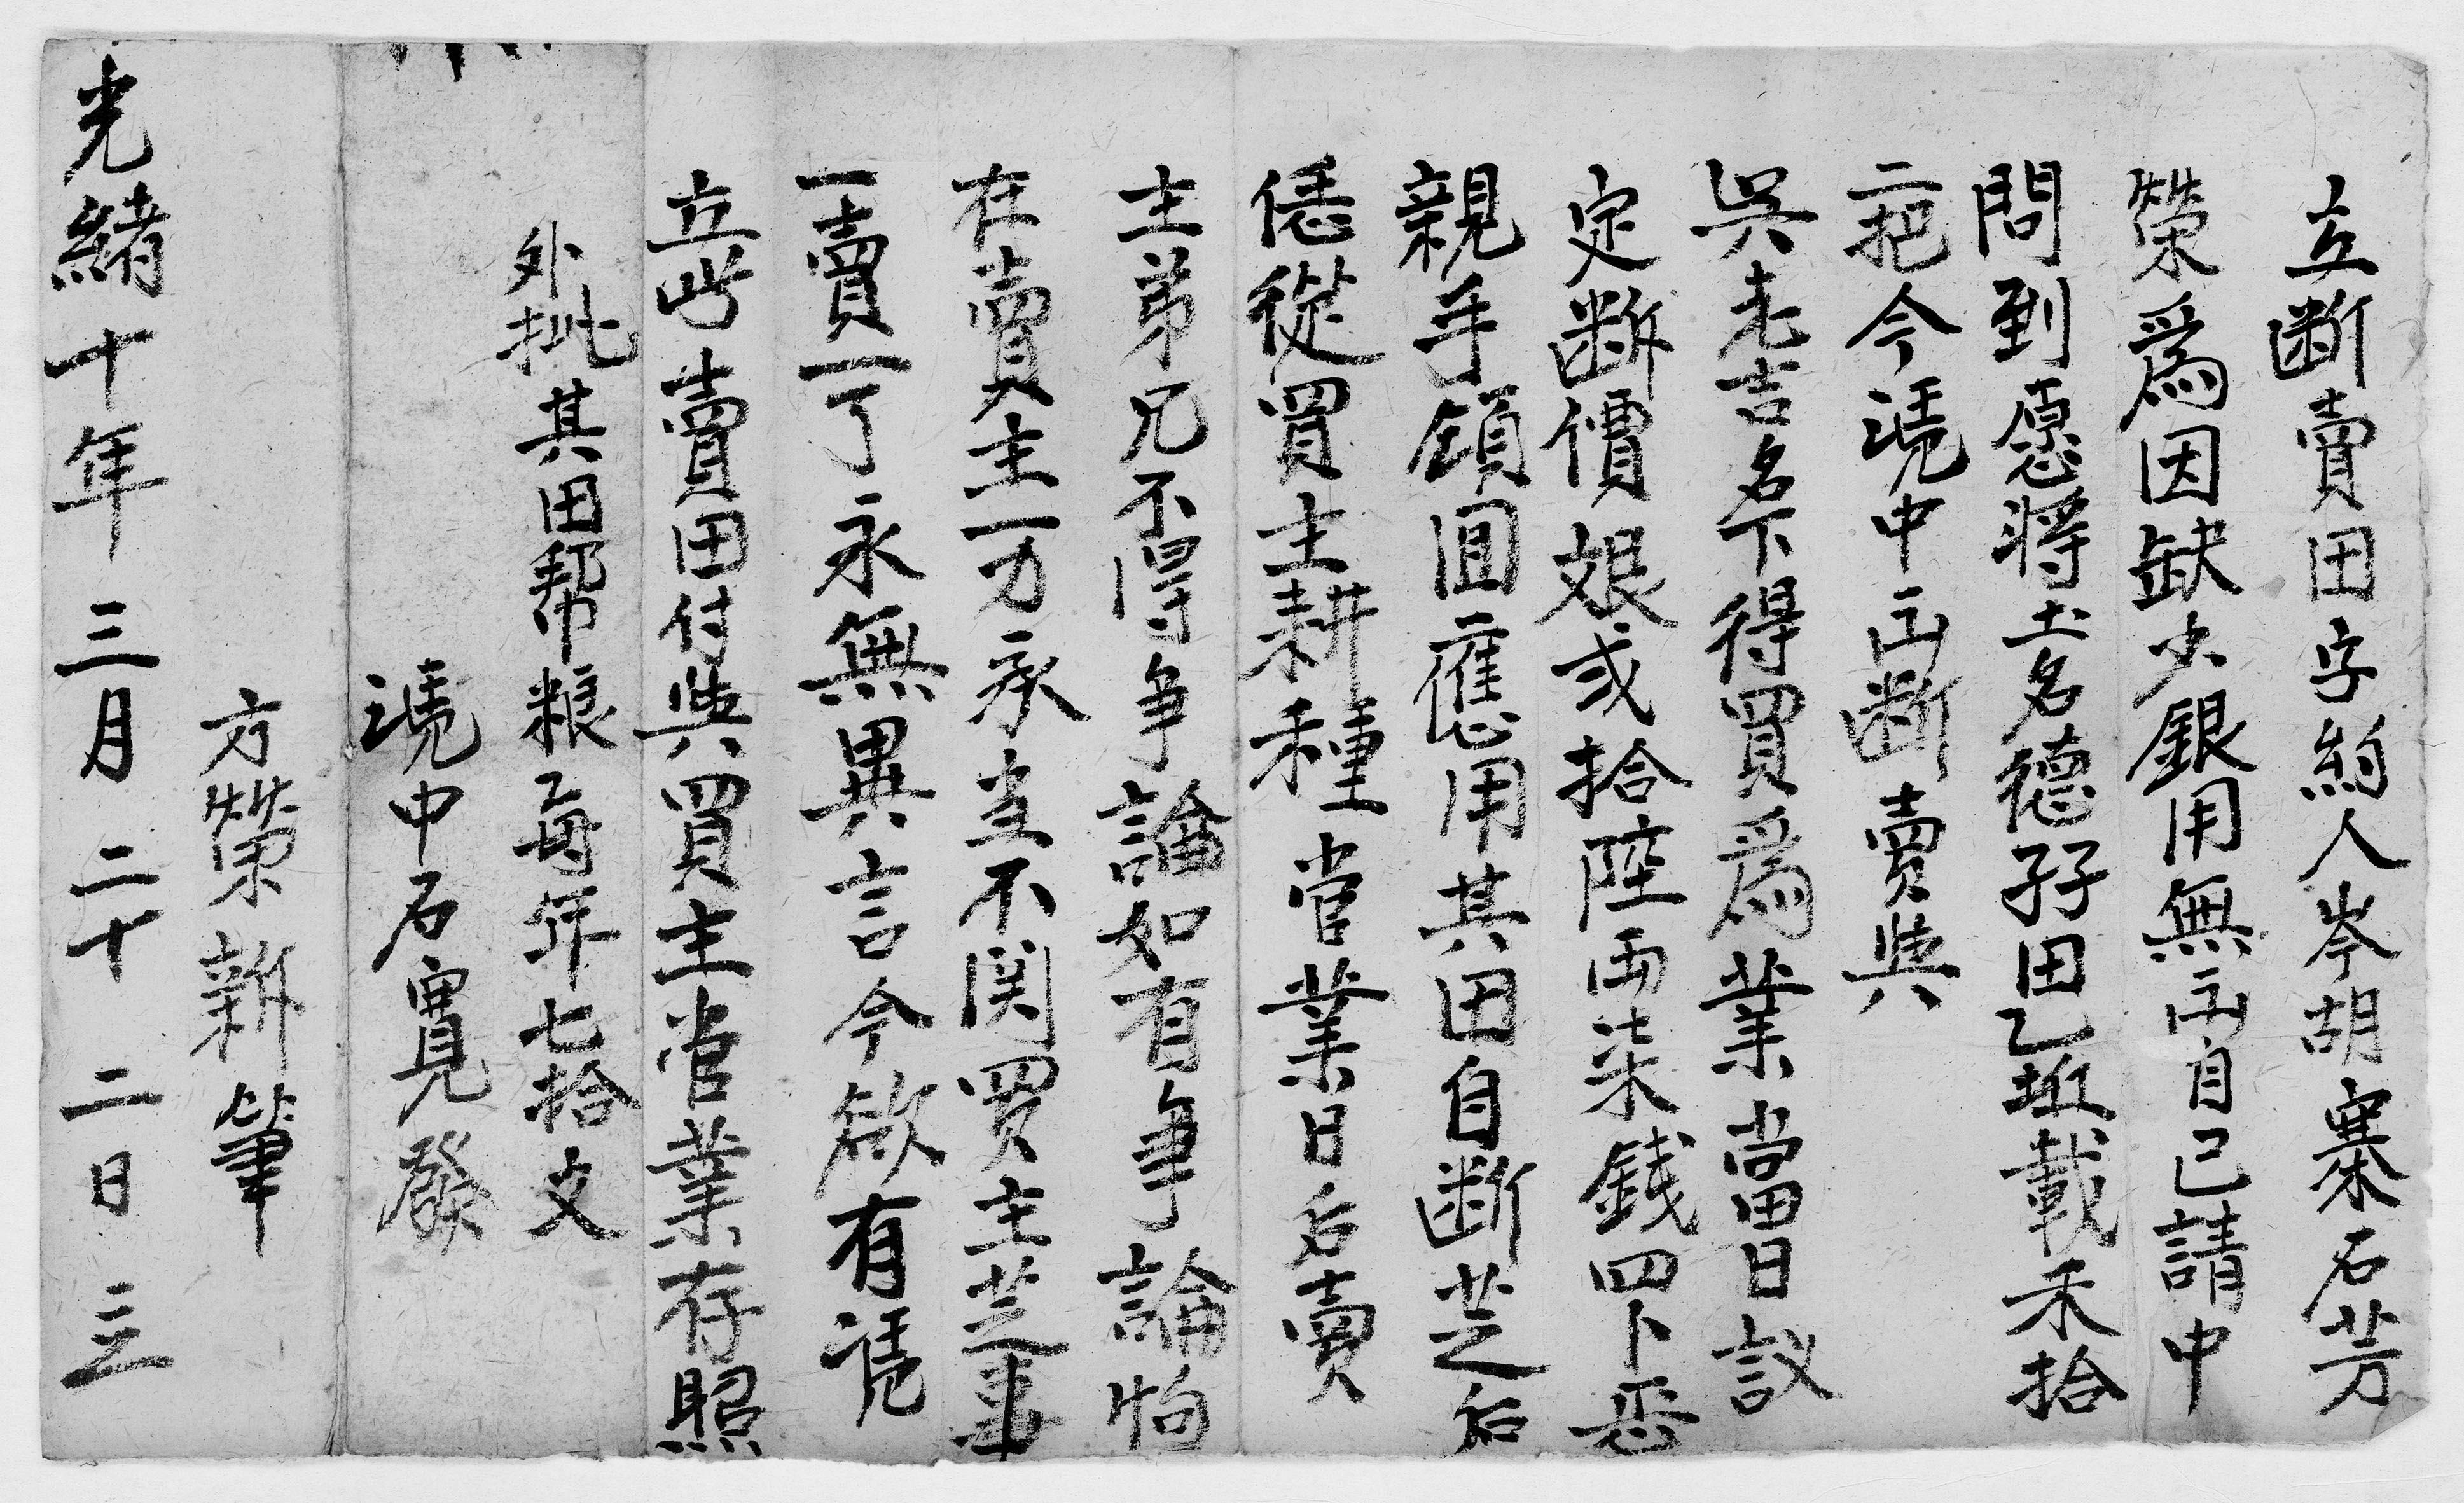 立断賣田字約人岑胡寨石芳
榮爲因缺少銀用無出自己請中
問到愿將土名德孖田乙坵載禾拾
二把今憑中出断賣與
吳老吉名下得買爲業當日議
定断價艮弍拾陸両柒錢四卜悉
親手領囬應用其田自断芝后
恁從買主耕種管業日后賣
主弟兄不得争論如有争論拘
在賣主一力承当不関買主芝事
一賣一了永無異言今欲有憑
立此賣田付與買主管業存照
外批其田帮粮每年七拾文
憑中石寬發
方榮新筆
光緒十年三月二十二日立